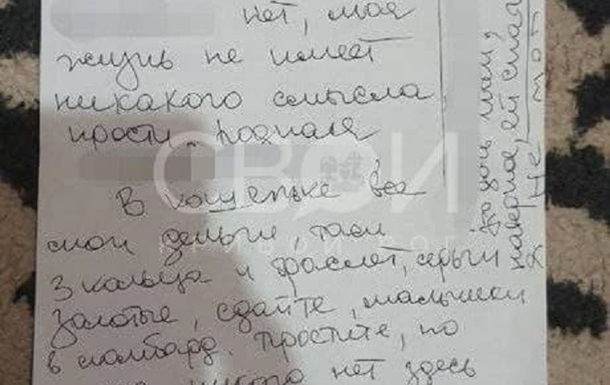 нет, моя
жизнь не имеет
никакого смысла
прости. Родная
В кошельке вса
мои деньги, там
3 кольца и браслет, серьги
золотые, сдайте, малышеки
в ломбард. Простите, но
никого нет здесь
СВОИ
КРИВОЙ РОГ
наверная, ей
не